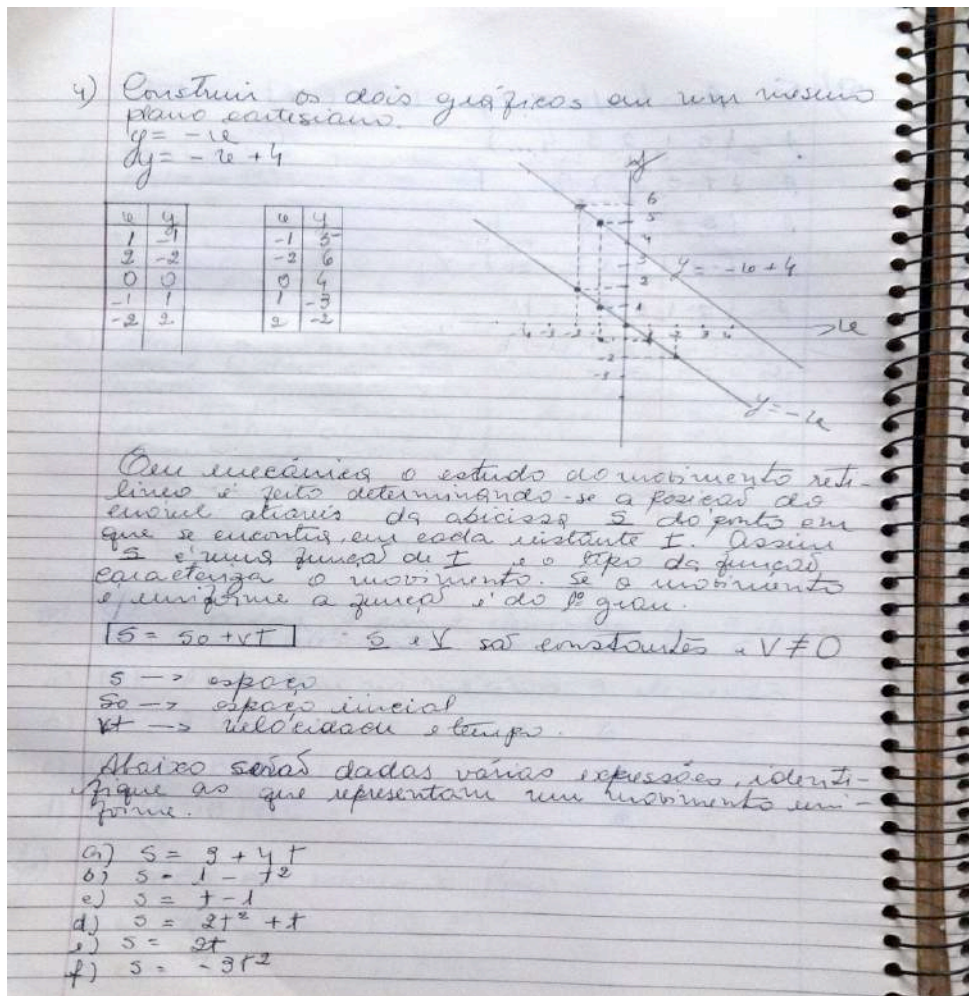 4) Construir os dois gráficos em um mesmo
plano cartesiano.
y = -x
y = -x + 4
x y
1 -1
2 -2
0 0
-1 1
-2 2
x y
-1 5
-2 6
0 4
1 -3
2 -2
y
6
5
4
3
2
1
-4 -3 -2 -1 1 2 3 4
x
-2
-3
y = -x + 4
y = -x
Em mecânica o estudo do movimento reti-
líneo é feito determinando-se a posição do
móvel através da abicissa S do ponto em
que se encontra, em cada instante T. Assim
S é uma função de T e o tipo da função
caracteriza o movimento. Se o movimento
é uniforme a função é do 1º grau.
S = So + VT S e V são constantes e V ≠ 0
S -> espaço
So -> espaço inicial
vt -> velocidade e tempo.
Abaixo serão dadas várias expressões, identi-
fique as que representam um movimento uni-
forme.
a) S = 3 + 4t
b) S = 1 - t²
c) S = t - 1
d) S = 2t² + t
e) S = 2t
f) S = -3t²